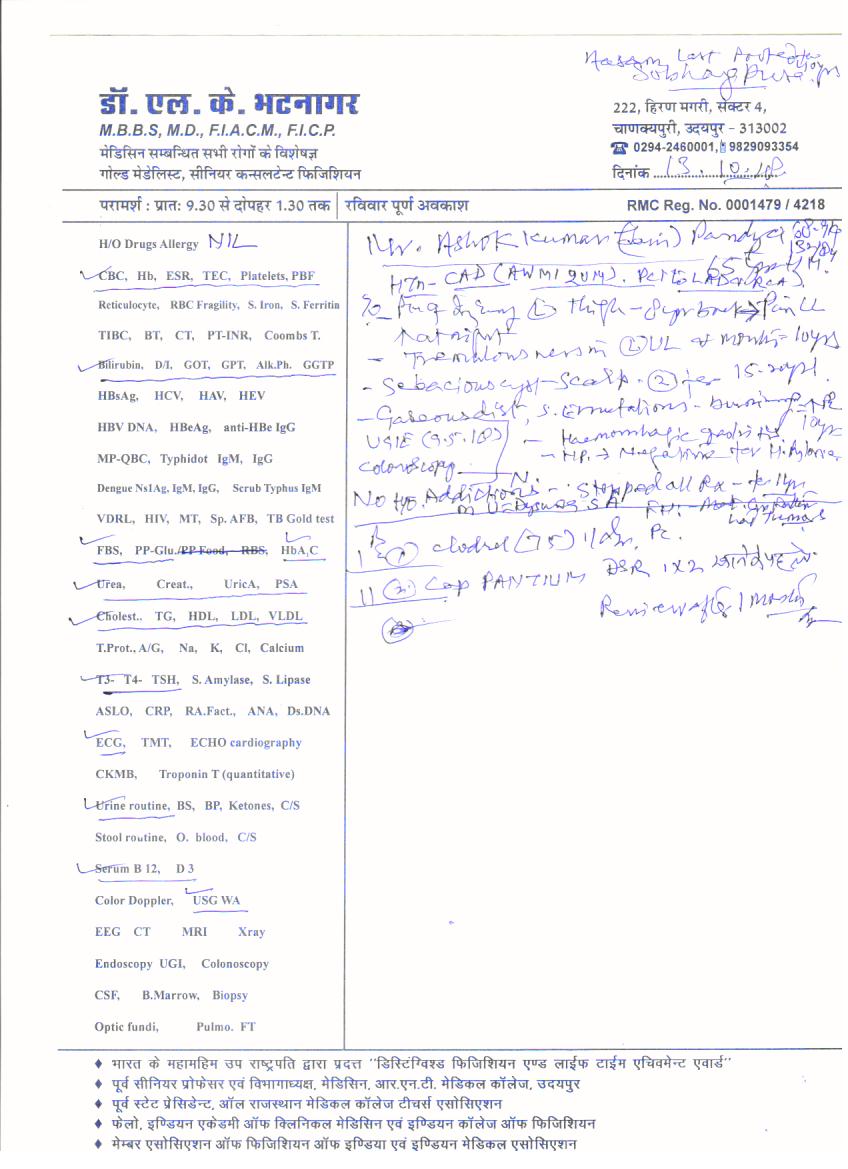 Sobhagpura
डॉ. एल. के. भटनागर
M.B.B.S, M.D., F.I.A.C.M., F.I.C.P.
मेडिसिन सम्बन्धित सभी रोगों के विशेषज्ञ
गोल्ड मेडेलिस्ट, सीनियर कन्सलटेन्ट फिजिशियन
222, हिरण मगरी, सेक्टर 4,
चाणक्यपुरी, उदयपुर - 313002
0294-2460001, 9829093354
दिनांक 13.10.18
परामर्श : प्रातः 9.30 से दोपहर 1.30 तक रविवार पूर्ण अवकाश RMC Reg. No. 0001479 / 4218
H/O Drugs Allergy NIL
CBC, Hb, ESR, TEC, Platelets, PBF
Reticulocyte, RBC Fragility, S. Iron, S. Ferritin
TIBC, BT, CT, PT-INR, Coombs T.
Bilirubin, D/I, GOT, GPT, Alk.Ph. GGTP
HBsAg, HCV, HAV, HEV
HBV DNA, HBeAg, anti-HBe IgG
MP-QBC, Typhidot IgM, IgG
Dengue Ns1Ag, IgM, IgG, Scrub Typhus IgM
VDRL, HIV, MT, Sp. AFB, TB Gold test
FBS, PP-Glu./PP Food, RBS, HbA,C
Urea, Creat., UricA, PSA
Cholest.. TG, HDL, LDL, VLDL
T.Prot., A/G, Na, K, Cl, Calcium
T3- T4- TSH, S. Amylase, S. Lipase
ASLO, CRP, RA.Fact., ANA, Ds.DNA
ECG, TMT, ECHO cardiography
CKMB, Troponin T (quantitative)
Urine routine, BS, BP, Ketones, C/S
Stool routine, O. blood, C/S
Serum B 12, D 3
Color Doppler, USG WA
EEG CT MRI Xray
Endoscopy UGI, Colonoscopy
CSF, B.Marrow, Biopsy
Optic fundi, Pulmo. FT
Mr. Ashok Kumar Pandya
HTn - CAD (AWMI 2014). PCI to LAD & RCA)
thigh
Tremulousness in (L) UL
- Sebacious cyst - Scalp. (2) for 15-20yrs.
- Gaseous dist, S. Eructations - burning
UGIE (9.5.18) - Haemorrhagic gastritis
- HP. → Negative for H. Pylorie
Colonoscopy - N.
No H/o. Addictions. - Stopped all Rx - for 1yr
(1) Clodrel (75) 1/day, Pc.
(2) Cap PANTIUM DSR 1x2 खाने से पहले
Review after 1 month
भारत के महामहिम उप राष्ट्रपति द्वारा प्रदत्त "डिस्टिंग्विश्ड फिजिशियन एण्ड लाईफ टाईम एचिवमेन्ट एवार्ड"
पूर्व सीनियर प्रोफेसर एवं विभागाध्यक्ष, मेडिसिन, आर.एन.टी. मेडिकल कॉलेज, उदयपुर
पूर्व स्टेट प्रेसिडेन्ट, ऑल राजस्थान मेडिकल कॉलेज टीचर्स एसोसिएशन
फेलो, इण्डियन एकेडमी ऑफ क्लिनिकल मेडिसिन एवं इण्डियन कॉलेज ऑफ फिजिशियन
मेम्बर एसोसिएशन ऑफ फिजिशियन ऑफ इण्डिया एवं इण्डियन मेडिकल एसोसिएशन